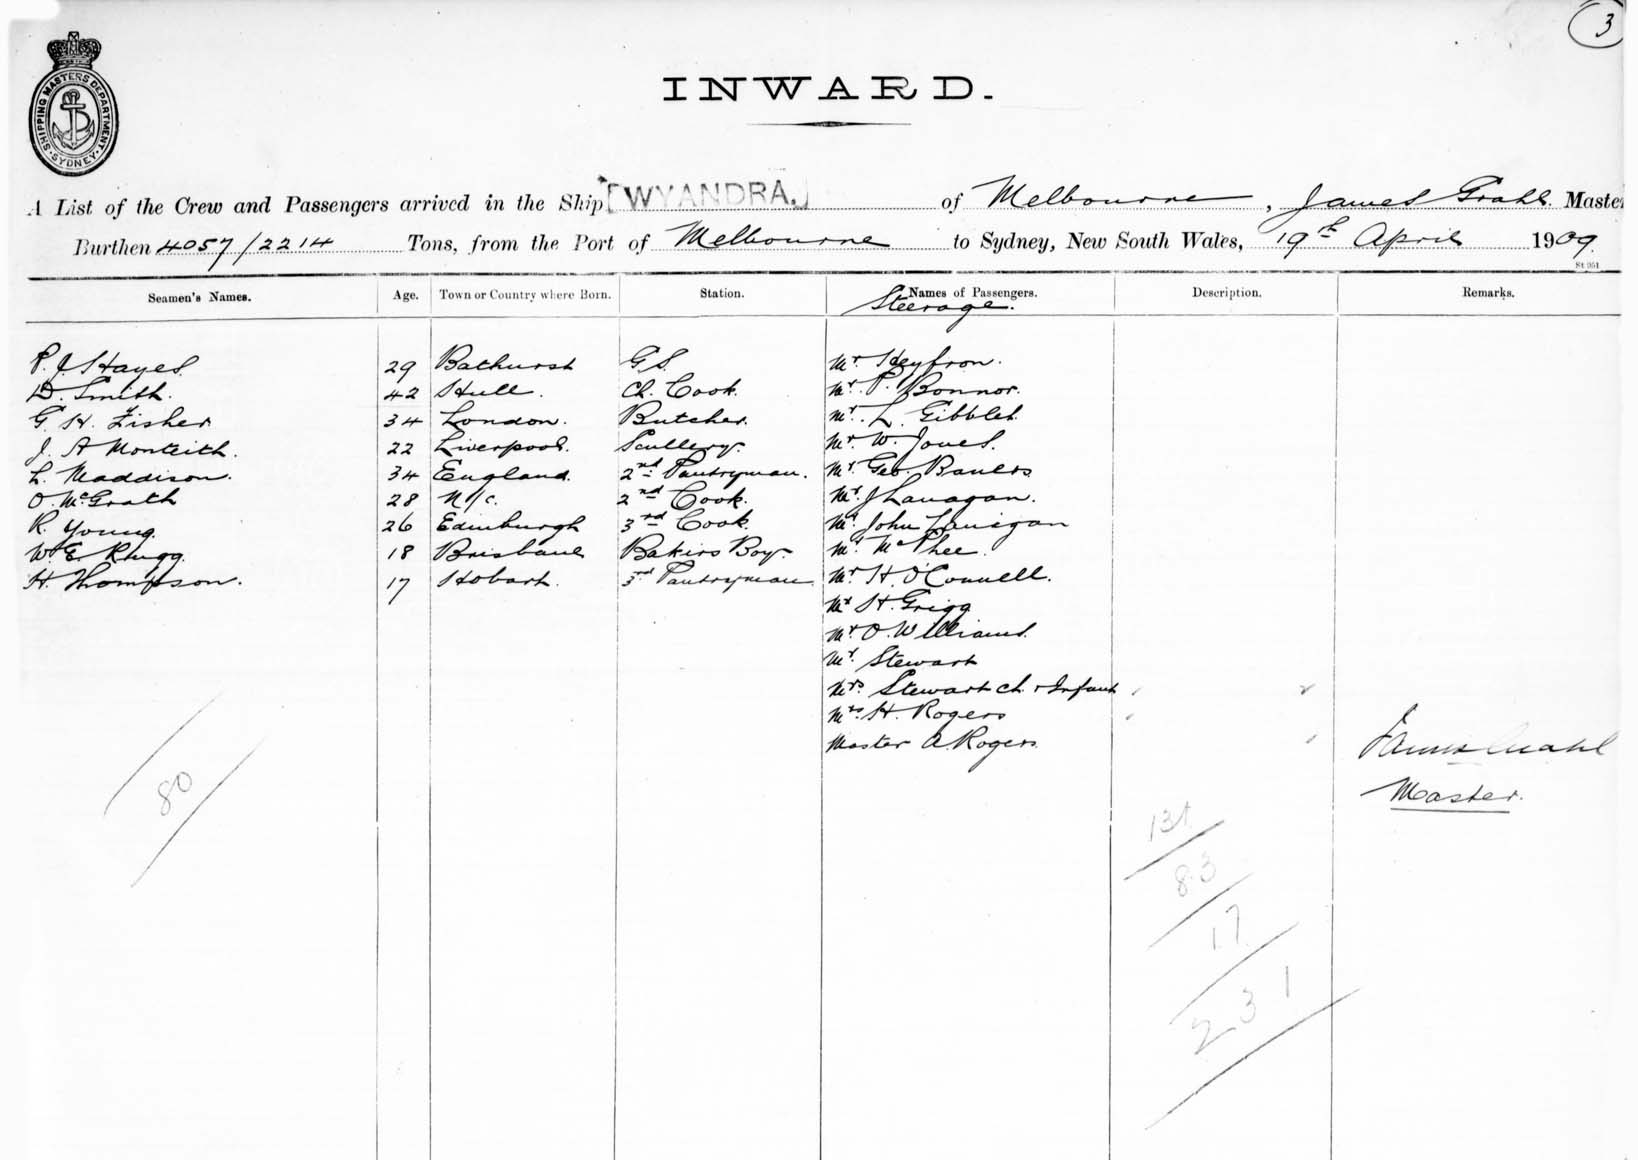 3
INWARD.
SHIPPING MASTERS DEPARTMENT
SYDNEY
A List of the Crew and Passengers arrived in the Ship [WYANDRA.] of Melbourne, James Grahl. Master
Burthen 4057/2214 Tons, from the Port of Melbourne to Sydney, New South Wales, 19th April 1909.
St 951
Seamen's Names. Age. Town or Country where Born. Station. Names of Passengers. Description. Remarks.
Steerage.
P. J. Hayes 29 Bathurst G.S. Mr
D. Smith. 42 Hull. Ch. Cook. Mr. P. Bonnor.
G. H. Fisher 34 London. Butcher. Mr. L. Gibblet
J. A Monteith. 22 Liverpool. Scullery. Mr. W. Jones.
L. Maddison. 34 England. 2nd Pantryman. Mr. Geo. Bauers
O. McGrath 28 N/C. 2nd Cook. Mr. J Lanagan.
R. Young. 26 Edinburgh 3rd Cook. Mr. John Lanigan
W. E. Rhugg. 18 Brisbane Bakers Boy. Mr. McPhee.
H. Thompson. 17 Hobart. 3rd Pantryman Mr H. O'Connell.
Mr H. Grigg
Mr. O. Williams.
Mr. Stewart
Mrs. Stewart ch. + Infant
Mrs. H. Rogers
Master A. Rogers.
James Grahl
Master.
80
131
83
17
231